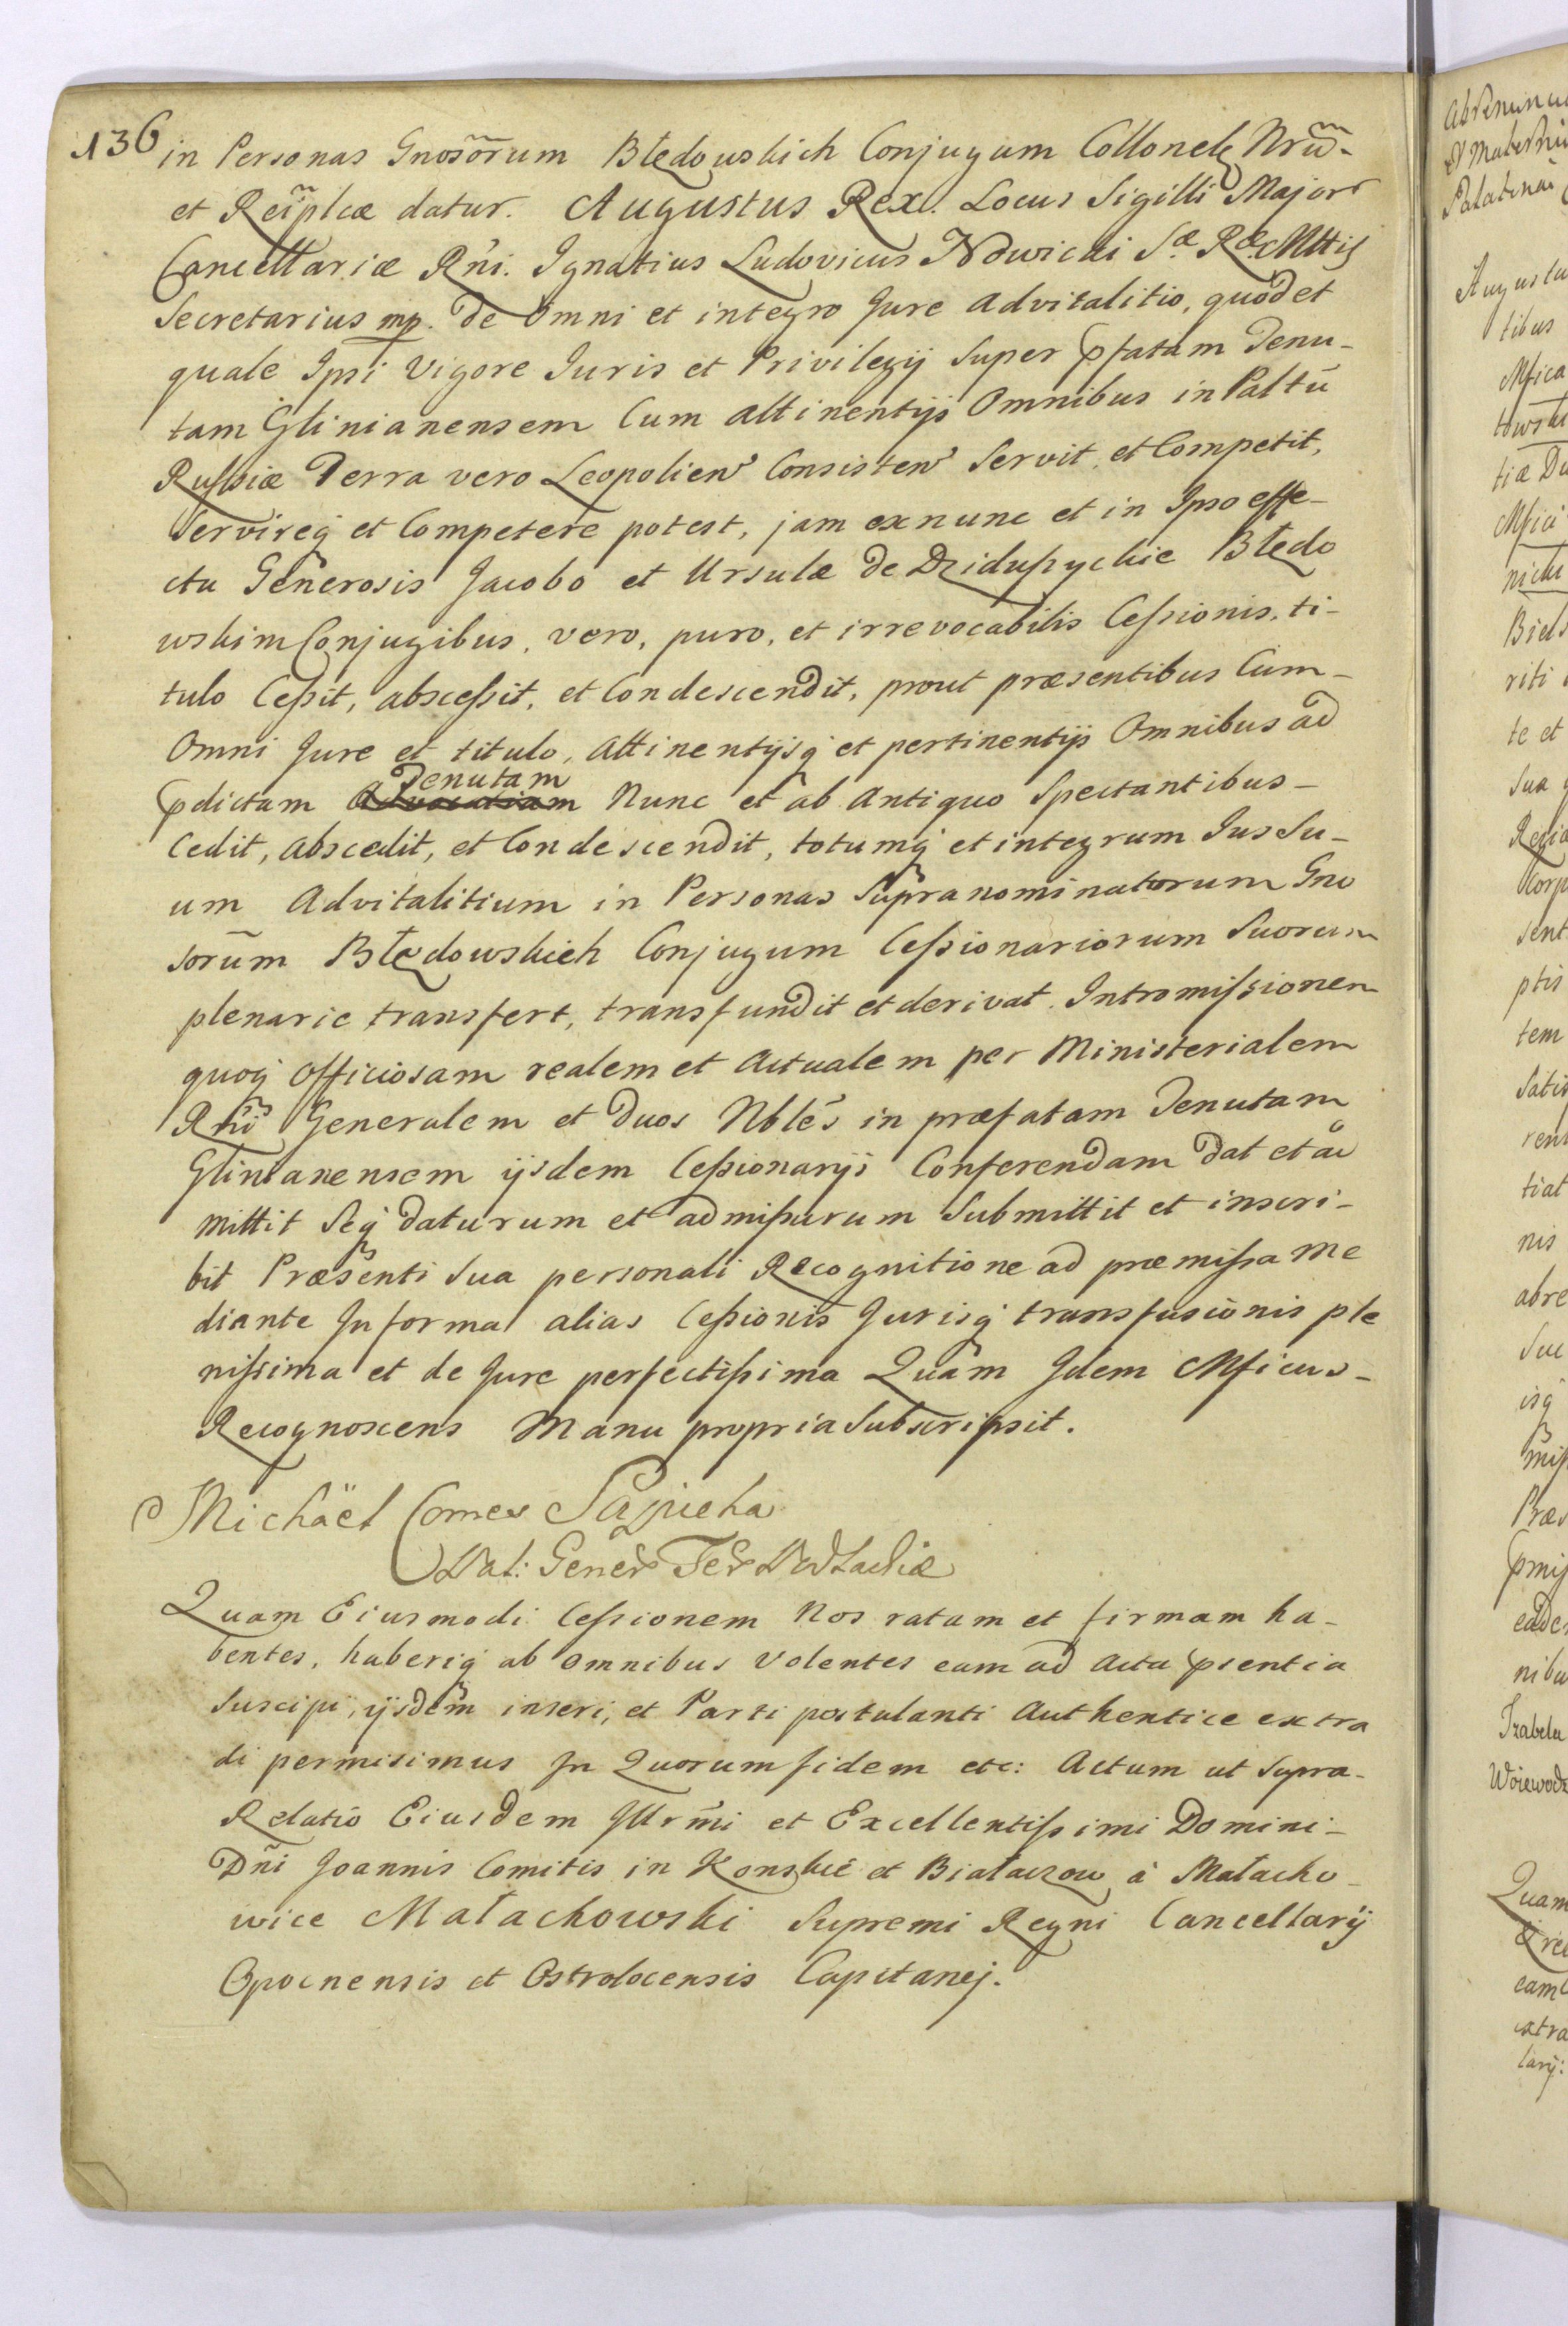 136
in Personas Gnosorum Błędowskich Conjugum Collonelę Nrũ-
et Reiplcæ datur. Augustus Rex. Locus Sigilli Majors
Cancellariæ Rñi. Ignatius Ludovicus Nowicki Sæ Ræ Mttis
Secretarius mp. de Omni et integro Jure advitalitio, quod et
quale Ipsi Vigore Iuris et Privilegij Super pfatam Tenu-
tam Glinianensem Cum attinentijs Omnibus in Paltũ
Russiæ Terra vero Leopolien Consisten Servit, et Competit,
Servireq et Competere potest, jam ex nunc et in Ipso effe-
ctu Generosis Jacobo et Ursulæ de Dziduszyckie Błędo
wskim Conjugibus, vero, puro, et irrevocabilis Cessionis, ti-
tulo Cessit, abscessit, et Condescendit, prout præsentibus Cum-
Omni Jure et titulo, attinentijsq et pertinentijs Omnibus ad
Tenutam
pdictam Advocatiam Nunc et ab Antiquo Spectantibus-
Cedit, abscedit, et Condescendit, totumq et integrum Jus Su-
um Advitalitium in Personas Supranominatorum Gno
sorũm Błędowskich Conjugum Cessionariorum Suorum
plenarie transfert, transfundit et derivat. Intromissionem
quoq Officiosam realem et Actualem per Ministerialem
Rñi Generalem et duos Nbles in præfatam Tenutam
Glinianensem ijsdem Cessionarijs Conferendam dat et ad
mittit Seq daturum et admissurum Submittit et inscri-
bit Præsenti Sua personali Recognitione ad præmissa Me
diante In forma alias Cessionis Jurisq transfusionis ple
nissima et de Jure perfectissima Quam Idem Mficus-
Recognoscens Manu propria Subscripsit.
Michäel Comes Sapieha
Pal: Gener Ter Podlachiæ
Quam Eiusmodi Cessionem Nos ratam et firmam ha-
bentes, haberiq ab Omnibus Volentes eam ad Acta psentia
Suscipi, ijsdem inseri, et Parti postulanti Authentice extra
di permisimus In Quorum fidem etc: Actum ut Supra-
Relatio Eiusdem Illrmi et Excellentissimi Domini-
Dñi Joannis Comitis in Konskie et Białaczow à Małacho-
wice Małachowski Supremi Regni Cancellarij
Opocnensis et Ostrolocensis Capitanej.